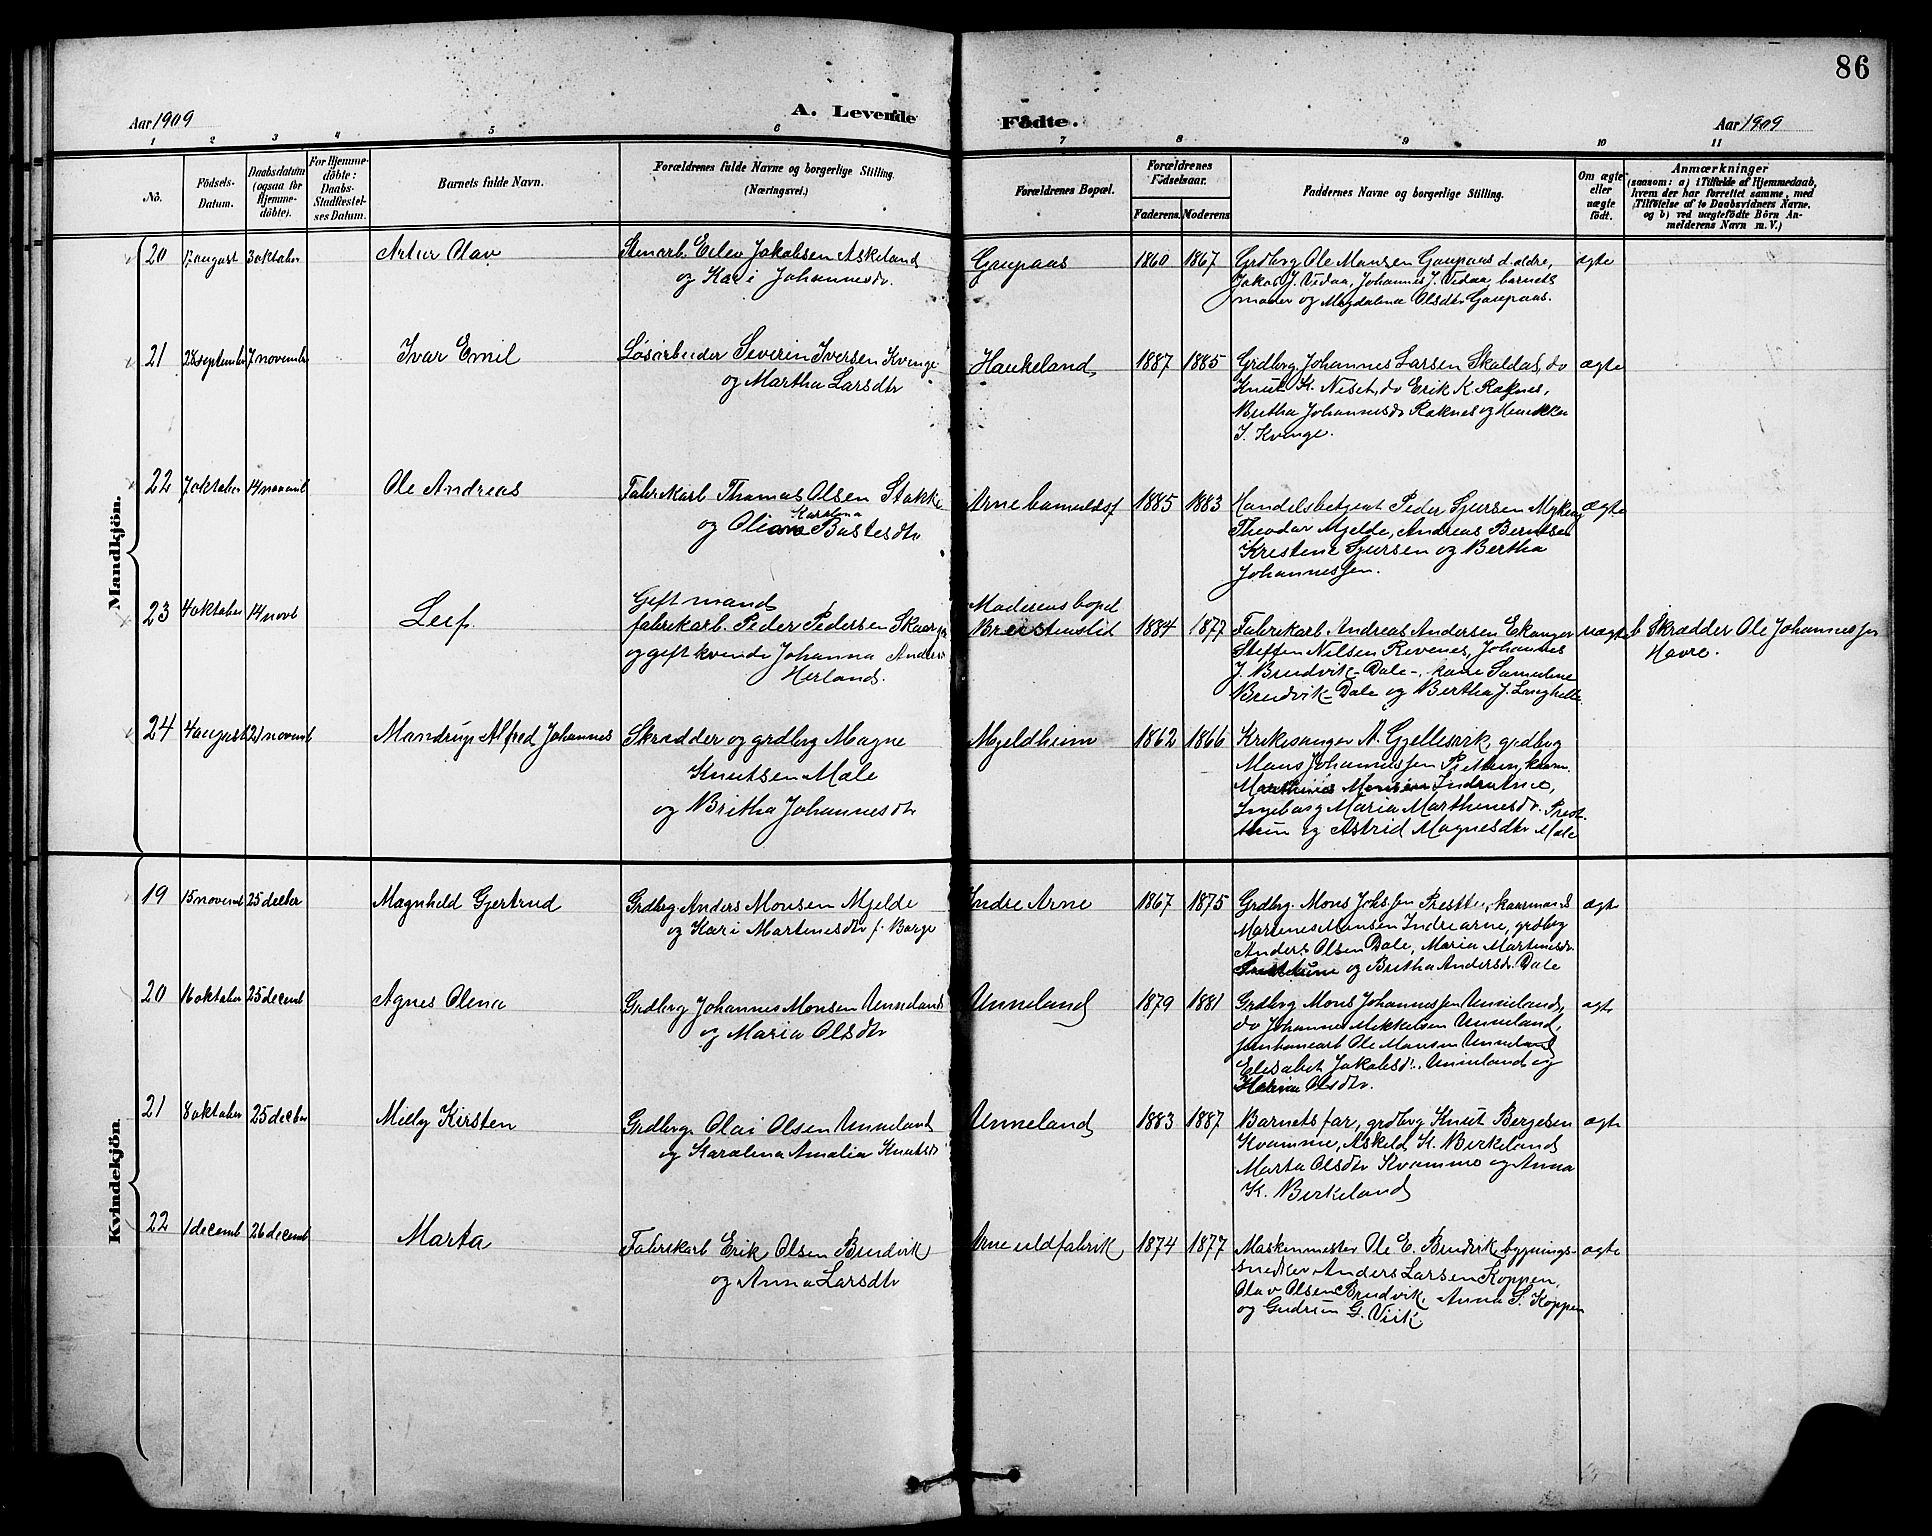 86
Aar 1909
A. Levende
Fødte.
Aar 1909
1 2 3 4 5 6 7 8 9 10 11
No.
Fødsels-Datum.
Daabsdatum (ogsaa for Hjemme-døbte).
For Hjemme-døbte: Daabs-Stadfæstel-ses Datum.
Barnets fulde Navn.
Forældrenes fulde Navne og borgerlige Stilling.
(Næringsvei.)
Forældrenes Bopæl.
Forældrenes Fødselsaar.
Faderens. Moderens
Faddernes Navne og borgerlige Stilling.
Om ægte eller uægte født.
Anmærkninger
(saasom: a) i Tilfælde af Hjemmedaab, hvem der har forrettet samme, med Tilføielse af to Daabsvidners Navne, og b) ved uægtefødte Børn An-melderens Navn m. V.)
Mandkjøn.
20 17 august 3 oktober Artur Olav Stenarb. Eilev Jakobsen Askeland Gaupaas 1860 1867 Grdbrg Ole Monsen Gaupaas d. ældre, ægte
og Kari Johannesdr. Jakob J. Vidaa, Johannes J. Vidaa, barnets
moder og Magdalena Olsdtr Gaupaas.
21 28 septembr 7 novembr Ivar Emil Løsarbeider Severin Iversen Kvinge Haukeland 1887 1885 Grdbrg. Johannes Larsen Skaldal, do ægte
og Martha Larsdtr Knut K. Niset, do Erik K. Raknes,
Britha Johannesdr Raknes og Henrikka
I. Kvinge.
22 7 oktober 14 novemb Ole Andreas Fabrikarb Thomas Olsen Stokke Arne bomuldsf 1885 1883 Handelsbetjent Peder Sjursen Myking ægte
Karolina
og Oliane Bastesdtr Theodor Mjelde, Andreas Berntsen
Kristene Sjursen og Bertha
Johannessen.
23 4 oktober 14 novb Leif Gift mand Moderens bopel
fabrikarb. Peder Pedersen Skaar Breistenslid 1884 1877 Fabrikarb Andreas Andersen Ekanger uægte b Skrædder Ole Johannessen
og gift kvinde Johanna Anders Steffen Nilsen Revenes, Johannes Havre.
Herland. J. Brudvik-Dale-, kone Samuline
Brudvik-Dale og Bertha J. Langhelle
24 4 august 21 novemb Mandrup Alfred Johannes Skrædder og grdbrg Magne Mjeldheim 1862 1866 Kirkesanger A. Gjellesvik, grdbrg
Knutsen Mæle Mons Johannessen
og Britha Johannesdtr Indrearne,
Ingeborg Maria Marthinesdr. Prest-
tun og Astrid Magnesdtr Mæle
Kvindekjön.
19 15 novemb 25 decbr Magnhild Gjertrud Grdbrg Anders Monsen Mjelde Indre Arne 1867 1875 Grdbrg. Mons Johssen Prestt., kaarmand ægte
og Kari Martinesdtr f. Borge Martines Monsen Indrearne, grdbrg
Anders Olsen Dale, Maria Martinesdr
og Britha Andersdr. Dale
20 16 oktober 25 decemb Agnes Olena Grdbrg Johannes Monsen Unneland Unneland 1879 1881 Grdbrg Mons Johannessen Unneland, ægte
og Maria Olsdtr do Johannes Mikkelsen Unneland,
jernbanearb Ole Monsen Unneland
Elisabet Jakobsdr. Unneland og
Olsdtr.
21 8 oktober 25 decber Milly Kirsten Grdbrg. Olai Olsen Unneland Unneland 1883 1887 Barnets far, grdbrg Knut Bergesen ægte
og Karolina Amalia Knutsdr Kvamme, Askeld K. Birkeland
Marta Olsdtr Kvamme og Anna
K. Birkeland
22 1 decemb 26 decemb Marta Fabrikarb Erik Olsen Brudvik Arne uldfabrik 1874 1877 Maskinmester Ole E. Brudvik, bygnings- ægte
og Anna Larsdtr snedker Anders Larsen Koppen,
Olav Olsen Brudvik, Anna S. Koppen
og Gudrun G. Viik